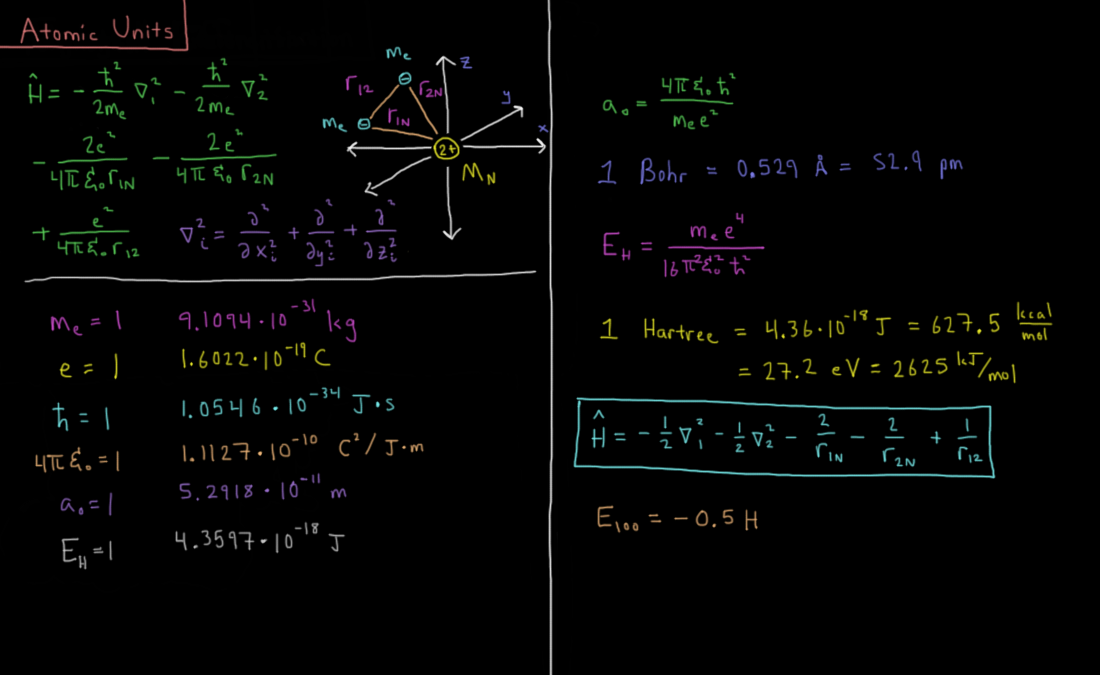 Atomic Units
Ĥ = - ħ²/2mₑ ∇₁² - ħ²/2mₑ ∇₂²
- 2e²/4πξ₀r₁N - 2e²/4πξ₀r₂N
+ e²/4πξ₀r₁₂ ∇ᵢ² = ∂²/∂xᵢ² + ∂²/∂yᵢ² + ∂²/∂zᵢ²
mₑ
z
r₁₂
r₂N
y
mₑ
r₁N
x
2+
M_N
mₑ = 1 9.1094·10⁻³¹ kg
e = 1 1.6022·10⁻¹⁹ C
ħ = 1 1.0546·10⁻³⁴ J·s
4πξ₀ = 1 1.1127·10⁻¹⁰ C²/J·m
a₀ = 1 5.2918·10⁻¹¹ m
E_H = 1 4.3597·10⁻¹⁸ J
a₀ = 4πξ₀ħ²/mₑe²
1 Bohr = 0.529 Å = 52.9 pm
E_H = mₑe⁴/16π²ξ₀²ħ²
1 Hartree = 4.36·10⁻¹⁸ J = 627.5 kcal/mol
= 27.2 eV = 2625 kJ/mol
Ĥ = - 1/2 ∇₁² - 1/2 ∇₂² - 2/r₁N - 2/r₂N + 1/r₁₂
E₁₀₀ = -0.5 H